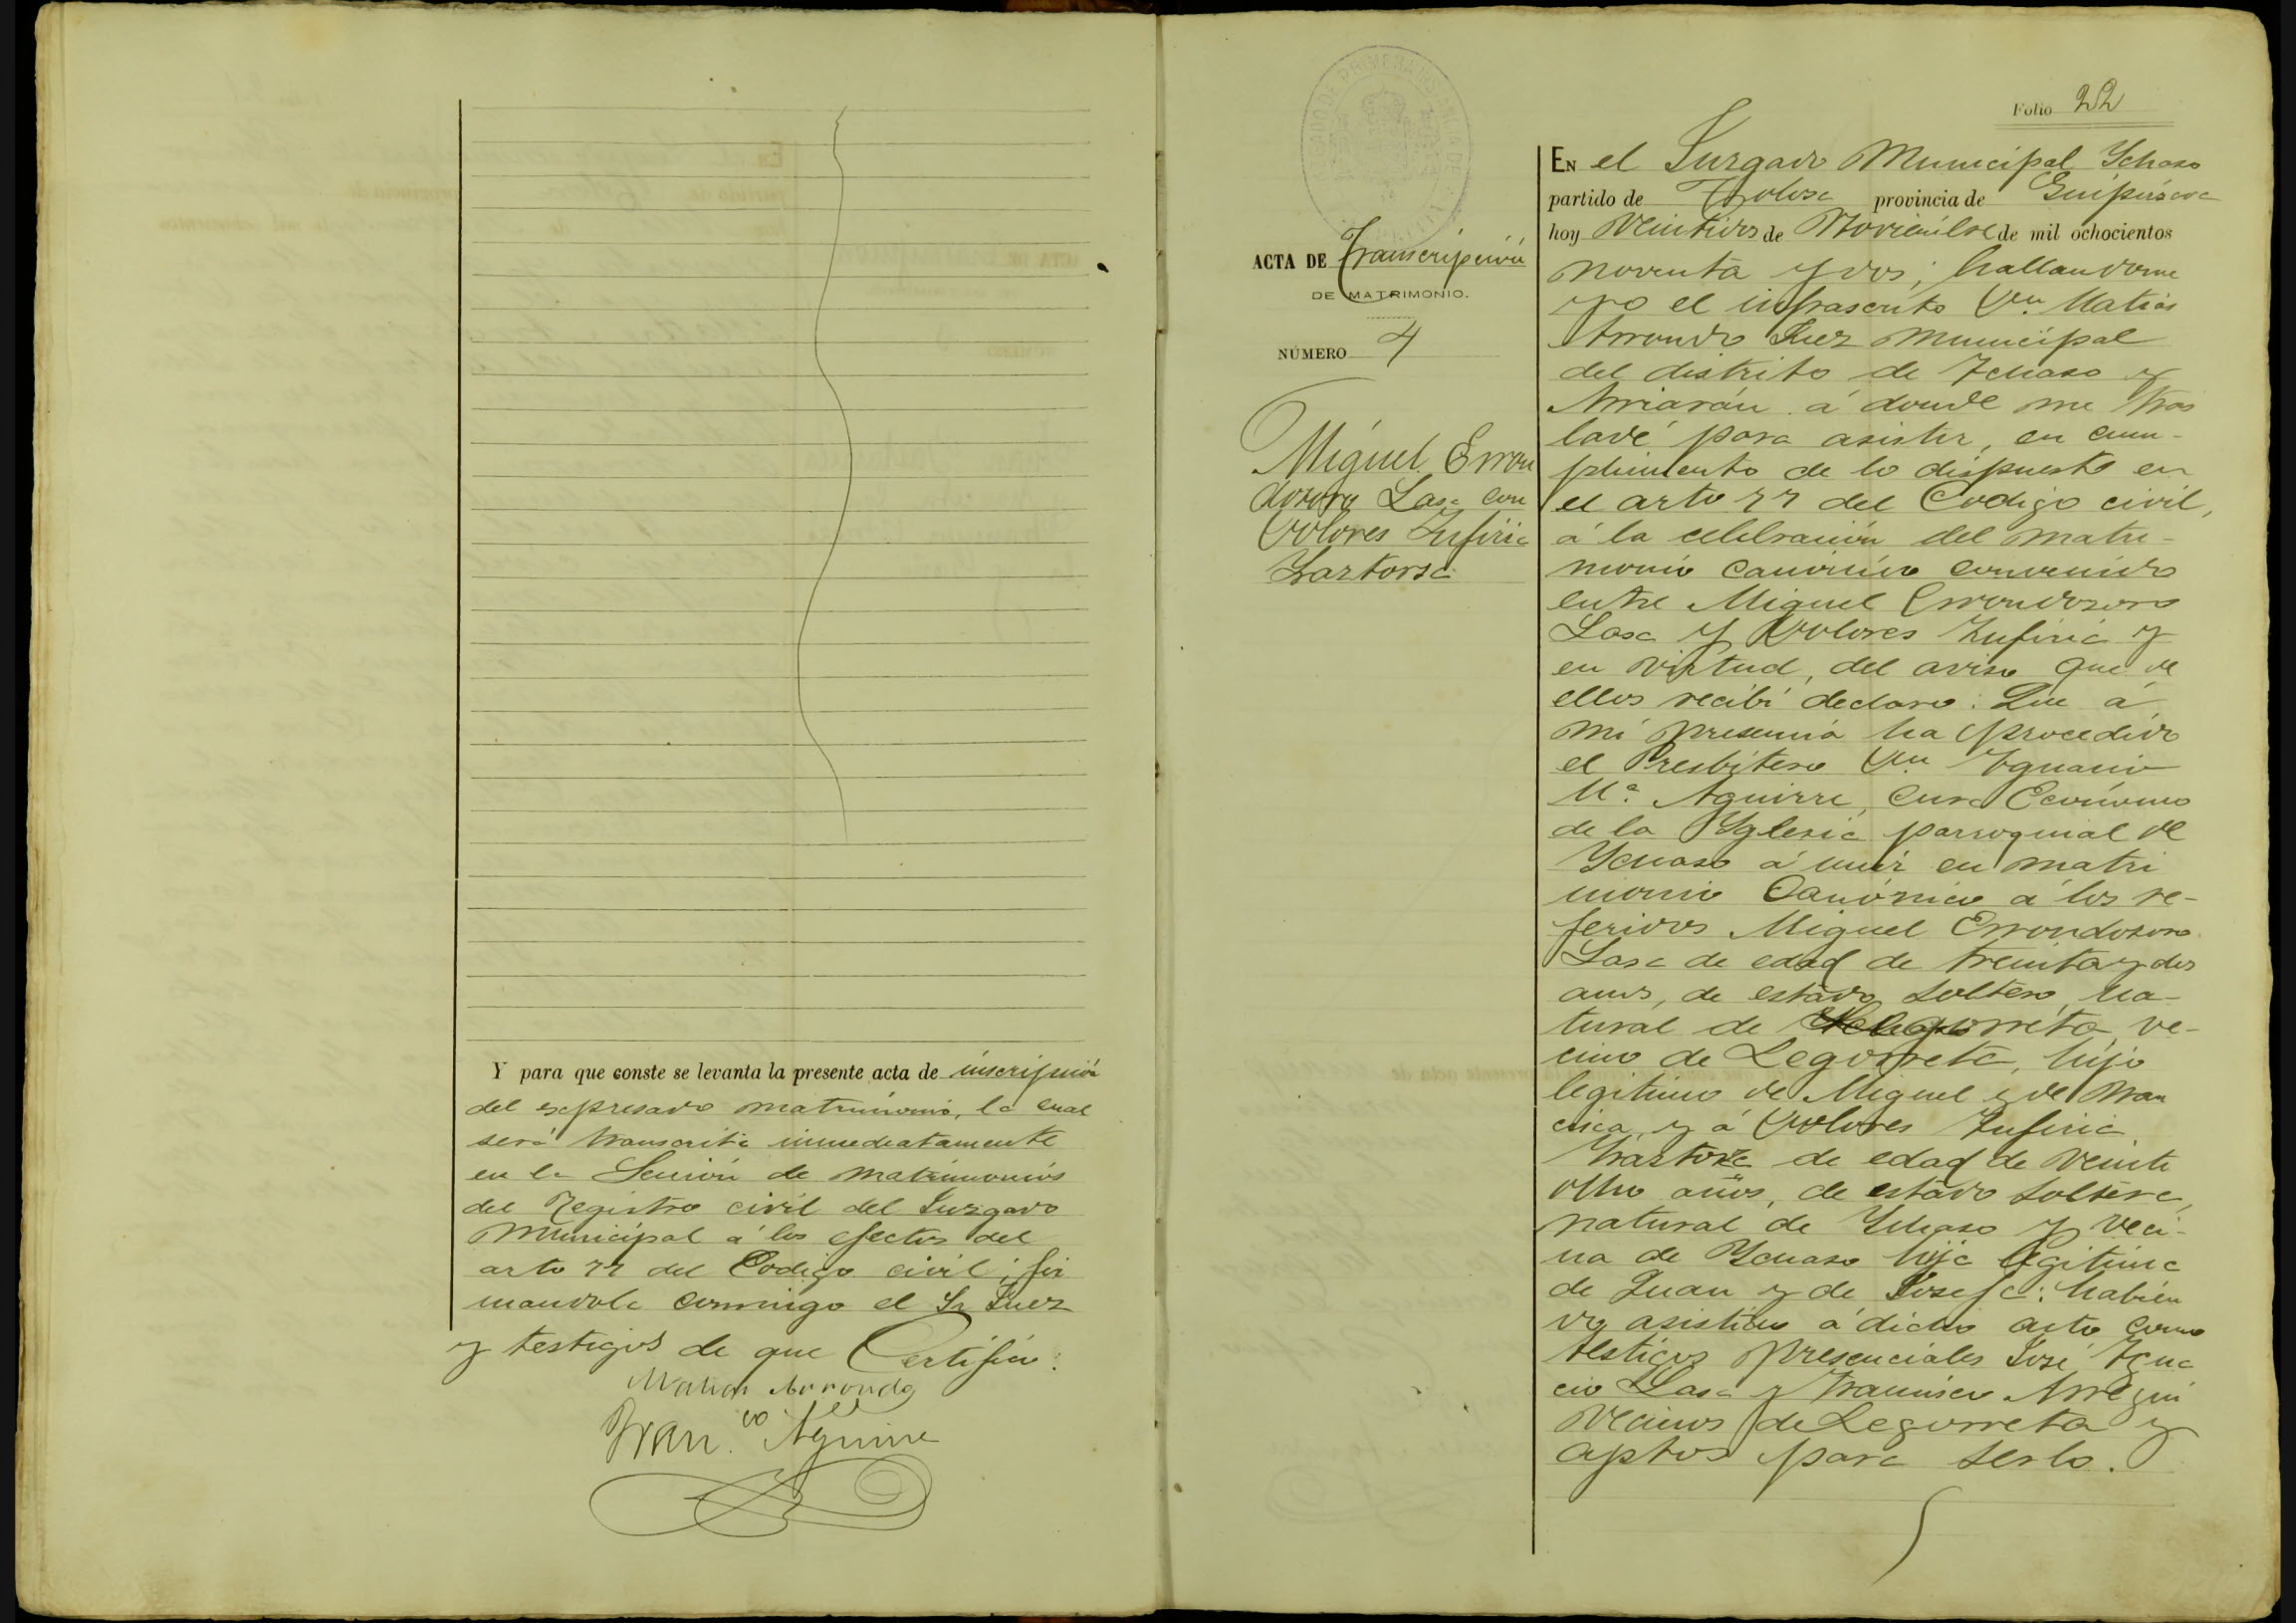 Y para que conste se levanta la presente acta de inscripción
del expresado matrimonio, la cual
será transcrita inmediatamente
en la Sección de matrimonios
del Registro civil del Juzgado
Municipal á los efectos del
arto 77 del Codigo civil; fir
mandola conmigo el Sr Juez
y testigos de que Certifico:
Matias Arrondo
Fran.co Aguirre
Folio 22
EN el Juzgado Municipal Ychaso
partido de Tolosa provincia de Guipúzcoa
hoy Veintidos de Noviembre de mil ochocientos
noventa y dos; hallandome
yo el infrascrito Dn. Matias
Arrondo Juez Municipal
del distrito de Ichaso y
Arriarán á donde me tras
ladé para asistir, en cum-
plimiento de lo dispuesto en
el arto 77 del Codigo civil,
á la celebración del matri-
monio canónico convenido
entre Miguel Errondosoro
Lasa y Dolores Zufiria y
en virtud, del aviso que de
ellos recibi declaro: Que á
mi presencia ha procedido
el Presbitero Dn Ygnacio
Mª. Aguirre, Cura Ecónomo
de la Yglesia parroquial de
Ychaso á unir en matri
monio Canónico á los re-
feridos Miguel Errondosoro
Lasa de edad de treinta y dos
anos, de estado soltero, na-
tural de Legorreta, ve-
cino de Legorreta, hijo
legitimo de Miguel y de Fran
cisca y á Dolores Zufiria
de edad de veinti
ocho años, de estado soltera,
natural de Ychaso y veci-
na de Ychaso hija legitima
de Juan y de Josefa: habien
do asistido á dicho acto como
testigos presenciales José Igna
cio Lasa y Francisco Arregui
vecinos de Legorreta y
aptos para serlo.
ACTA DE Transcripción
DE MATRIMONIO.
NÚMERO 4
Miguel Erron
dosoro Lasa con
Dolores Zufiria